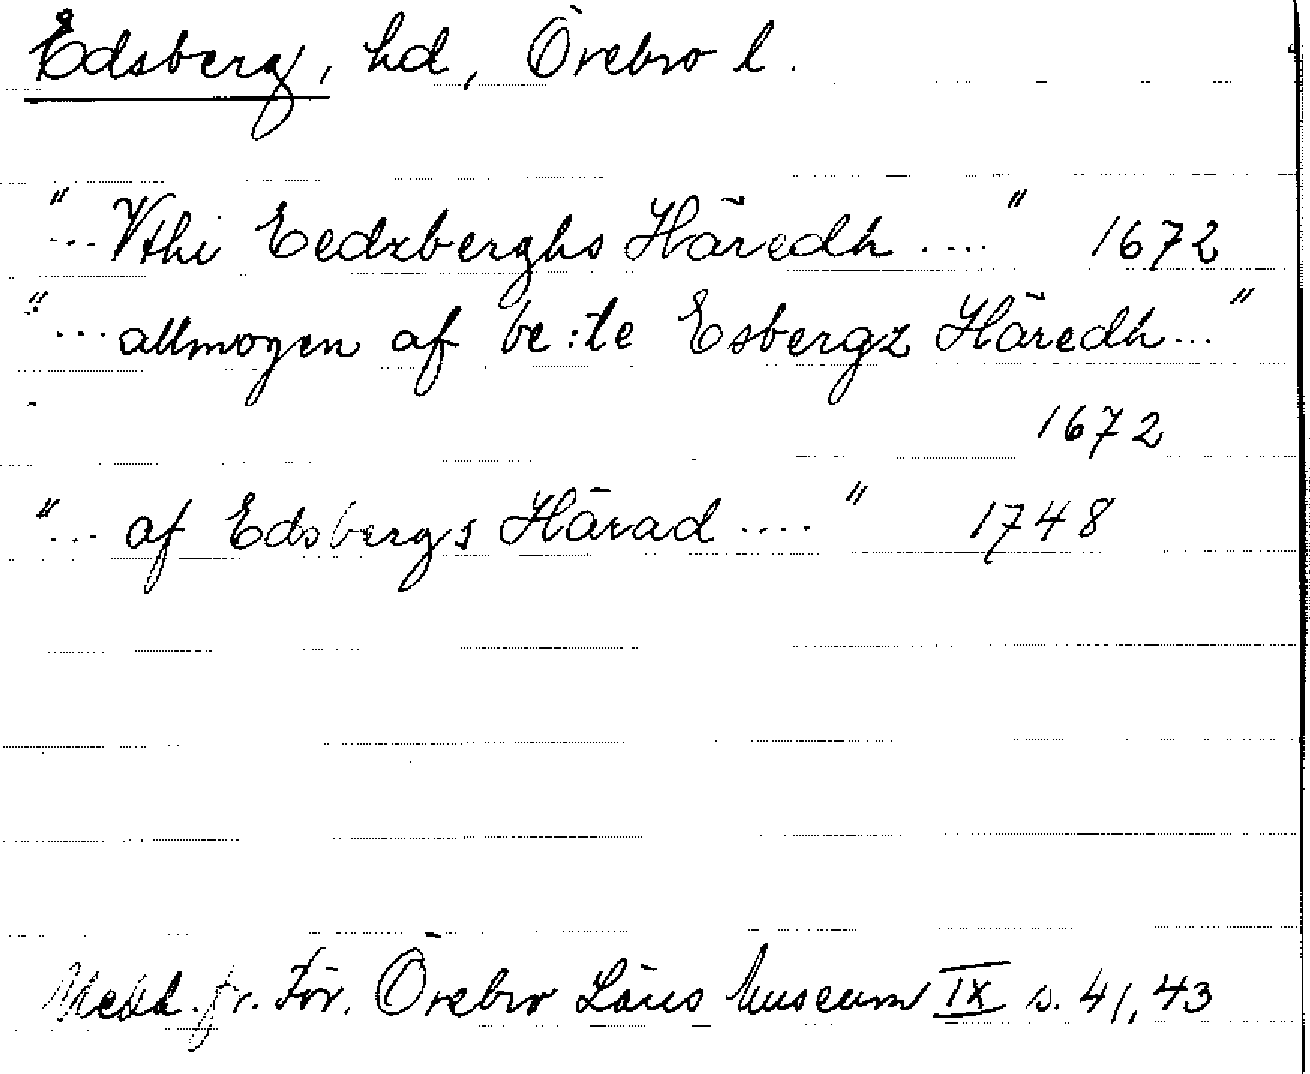 Edsberg, hd, Örebro l.
"... Vthi Eedzberghs Häredh ...." 1672
"... allmogen af be:te Esbergz Häredh..."
1672
"... af Edsbergs Härad ...." 1748
Medd. fr. För. Örebro Läns Museum IX s. 41, 43